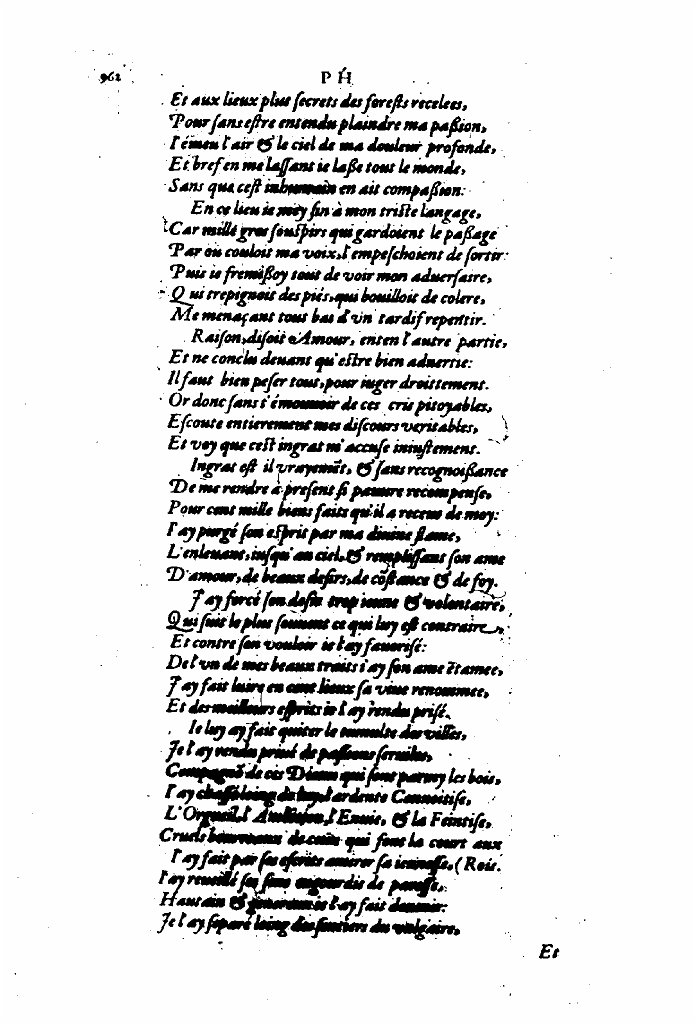 962 PH
Et aux lieux plus ſecrets des foreſts recelees,
Pour ſans eſtre entendu plaindre ma paßion,
I'émeu l'air & le ciel de ma douleur profonde,
Et bref en me laſſant ie laße tout le monde,
Sans que ceſt inhumain en ait compaßion:
En ce lieu ie mey fin à mon triſte langage,
Car mille gros ſouſpirs qui gardoient le paßage
Par où couloit ma voix, l'empeſchoient de ſortir:
Puis ie fremißoy tout de voir mon aduerſaire,
Qui trepignoit des piés, qui bouilloit de colere,
Me menaçant tout bas d'vn tardif repentir.
Raiſon, diſoit Amour, enten l'autre partie,
Et ne conclu deuant qu'eſtre bien aduertie:
Il faut bien peſer tout, pour iuger droittement.
Or donc ſans t'émouuoir de ces cris pitoyables,
Eſcoute entierement mes diſcours veritables,
Et voy que ceſt ingrat m'accuſe iniuſtement.
Ingrat eſt il vrayemẽt, & ſans recognoißance
De me rendre à preſent ſi pauure recompenſe,
Pour cent mille biens faits qu'il a receus de moy:
I'ay purgé ſon eſprit par ma diuine flame,
L'enleuant, iuſqu'au ciel, & rempliſſant ſon ame
D'amour, de beaux deſirs, de cõſtance & de foy.
J'ay forcé ſon deſir trop ieune & volontaire,
Qui ſuit le plus ſouuent ce qui luy eſt contraire,
Et contre ſon vouloir ie l'ay fauoriſé:
De l'vn de mes beaux traits i'ay ſon ame ẽtamee,
J'ay fait luire en cent lieux ſa viue renommee,
Et des meilleurs eſprits ie l'ay rendu priſé.
Ie luy ay fait quiter le tumulte des villes,
Je l'ay rendu priué de paſſions ſeruiles,
Compagnõ de ces Dieux qui ſont parmy les bois,
I'ay chaſſé loing de luy l'ardente Conuoitiſe,
L'Orgueil, l'Ambition, l'Enuie, & la Feintiſe,
Cruels bourreaux de ceux qui font la court aux
I'ay fait par ſes eſcrits amirer ſa ieuneſſe, (Rois.
I'ay reueillé ſes ſens engourdis de pareſſe,
Hautain & genereux ie l'ay fait deuenir:
Je l'ay ſeparé loing des ſentiers du vulgaire,
Et